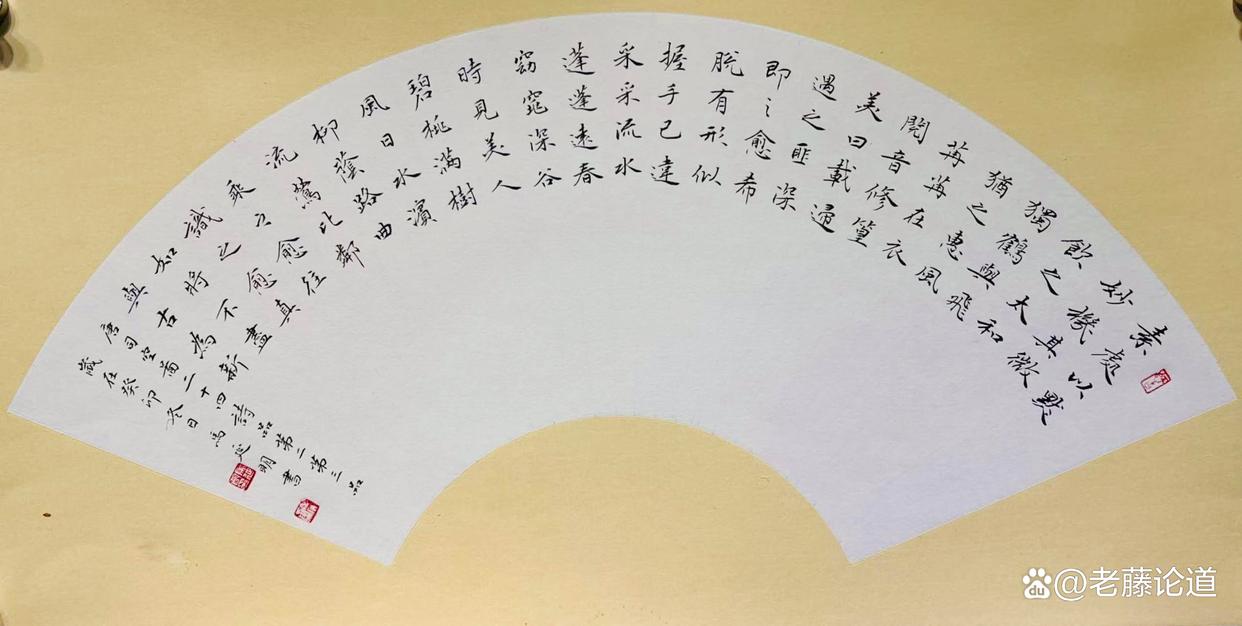 素處以默
妙機其微
飲之太和
獨鶴與飛
猶之惠風
苒苒在衣
閱音修篁
美曰載歸
遇之匪深
即之愈希
脫有形似
握手已違
采采流水
蓬蓬遠春
窈窕深谷
時見美人
碧桃滿樹
風日水濱
柳蔭路曲
流鶯比鄰
乘之愈往
識之愈真
如將不盡
與古為新
唐司空圖二十四詩品第二第三品
歲在癸卯冬日馮明書
@老藤论道